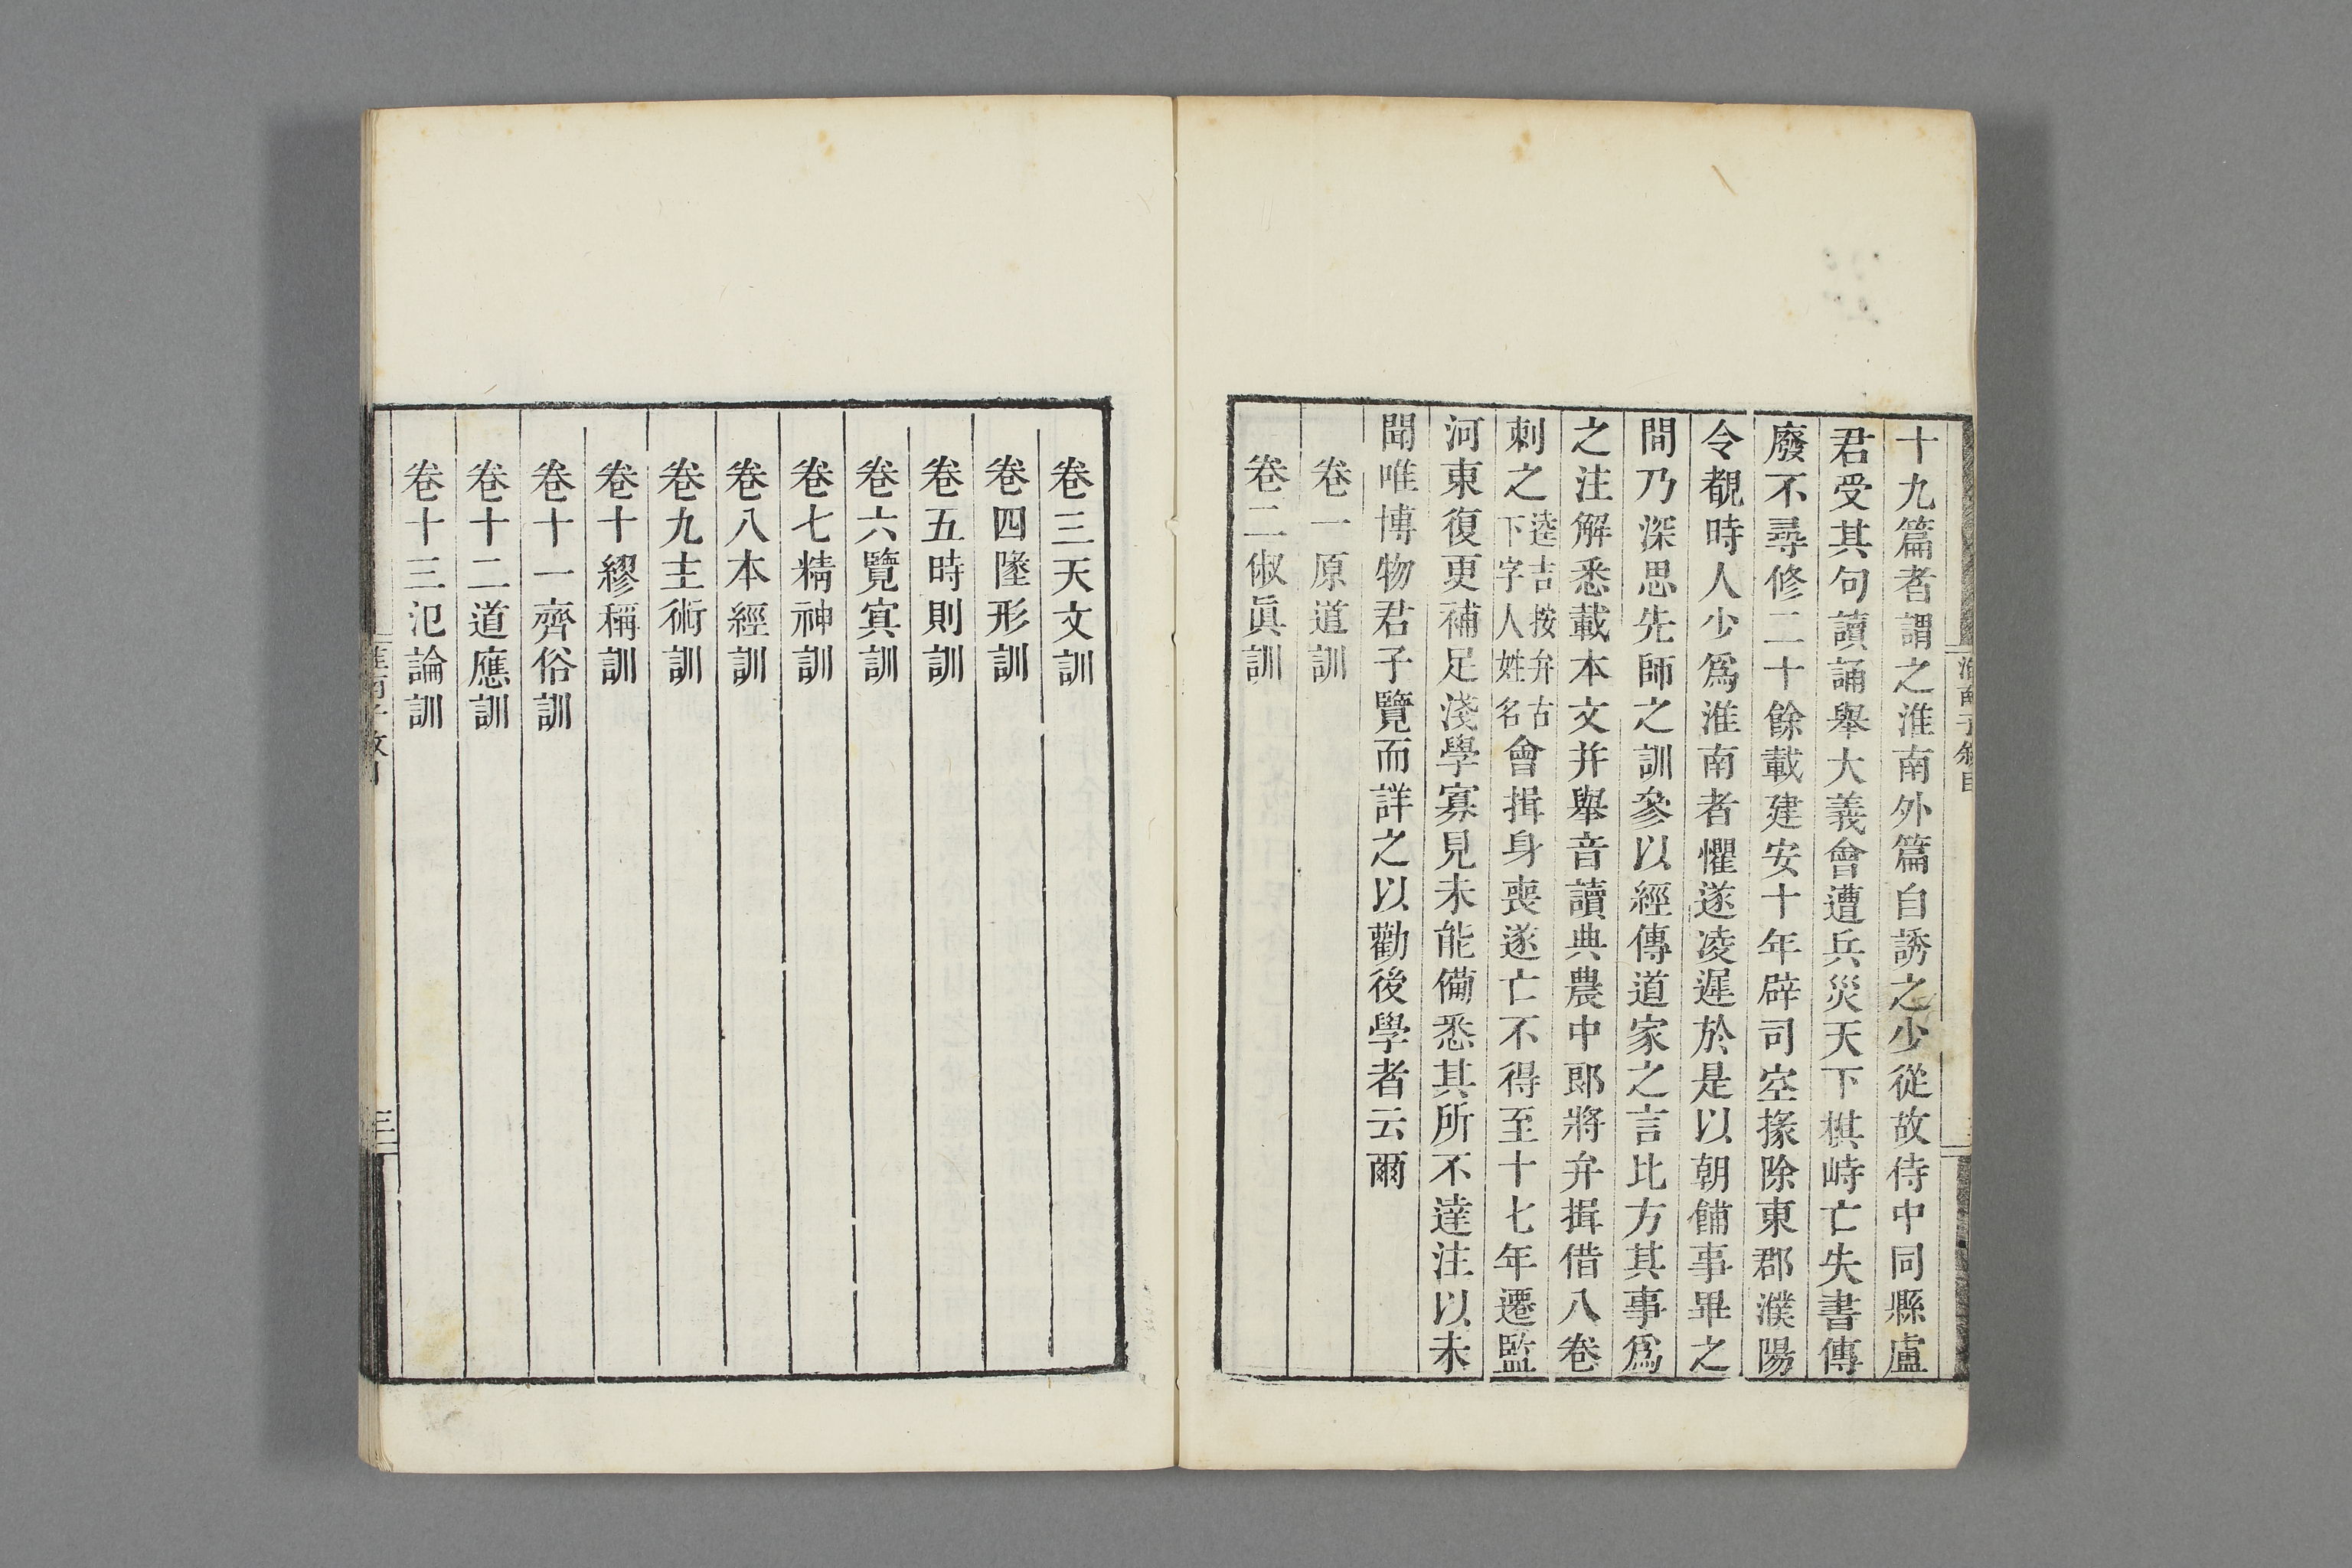 淮南子敘目
十九篇者謂之淮南外篇自誘之少從故侍中同縣盧
君受其句讀誦舉大義會遭兵災天下棋峙亡失書傳
廢不尋修二十餘載建安十年辟司空掾除東郡濮陽
令覩時人少爲淮南者懼遂凌遲於是以朝餔事畢之
間乃深思先師之訓參以經傳道家之言比方其事爲
之注解悉載本文并舉音讀典農中郎將弁揖借八卷
刺之逵吉按弁古下字人姓名會揖身喪遂亡不得至十七年遷監
河東復更補足淺學寡見未能備悉其所不達注以未
聞唯博物君子覽而詳之以勸後學者云爾
卷一原道訓
卷二俶眞訓
卷三天文訓
卷四墬形訓
卷五時則訓
卷六覽寘訓
卷七精神訓
卷八本經訓
卷九主術訓
卷十繆稱訓
卷十一齊俗訓
卷十二道應訓
卷十三氾論訓
淮南子敘目
三